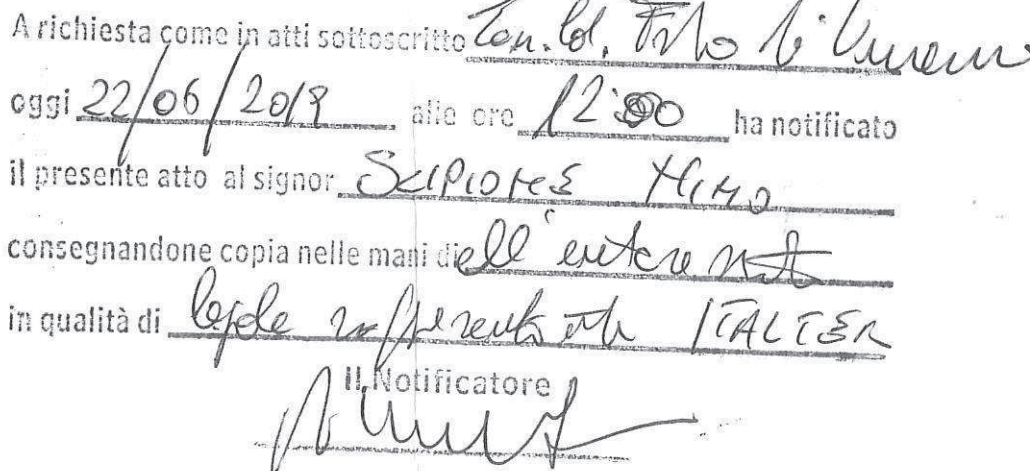 A richiesta come in atti sottoscritto
oggi 22/06/2019 alle ore 12:00 ha notificato
il presente atto al signor SCIPIONE MIMO
consegnandone copia nelle mani dell'interessato
in qualità di legale rappresentante ITALTER
Il Notificatore